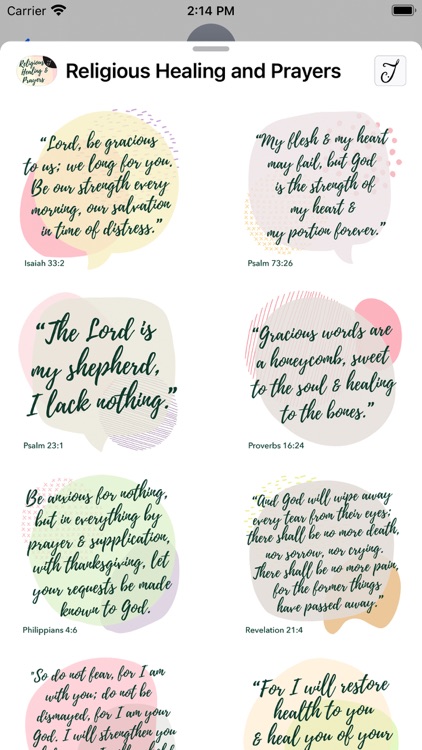 Carrier 2:14 PM
Religious Healing & Prayers
Religious Healing and Prayers
J
“Lord, be gracious
to us; we long for you.
Be our strength every
morning, our salvation
in time of distress.”
Isaiah 33:2
“My flesh & my heart
may fail, but God
is the strength of
my heart &
my portion forever.”
Psalm 73:26
“The Lord is
my shepherd,
I lack nothing.”
Psalm 23:1
“Gracious words are
a honeycomb, sweet
to the soul & healing
to the bones.”
Proverbs 16:24
Be anxious for nothing,
but in everything by
prayer & supplication,
with thanksgiving, let
your requests be made
known to God.
Philippians 4:6
“And God will wipe away
every tear from their eyes;
there shall be no more death,
nor sorrow, nor crying.
There shall be no more pain,
for the former things
have passed away.”
Revelation 21:4
"So do not fear, for I am
with you; do not be
dismayed, for I am your
God. I will strengthen you
“For I will restore
health to you
& heal you of your